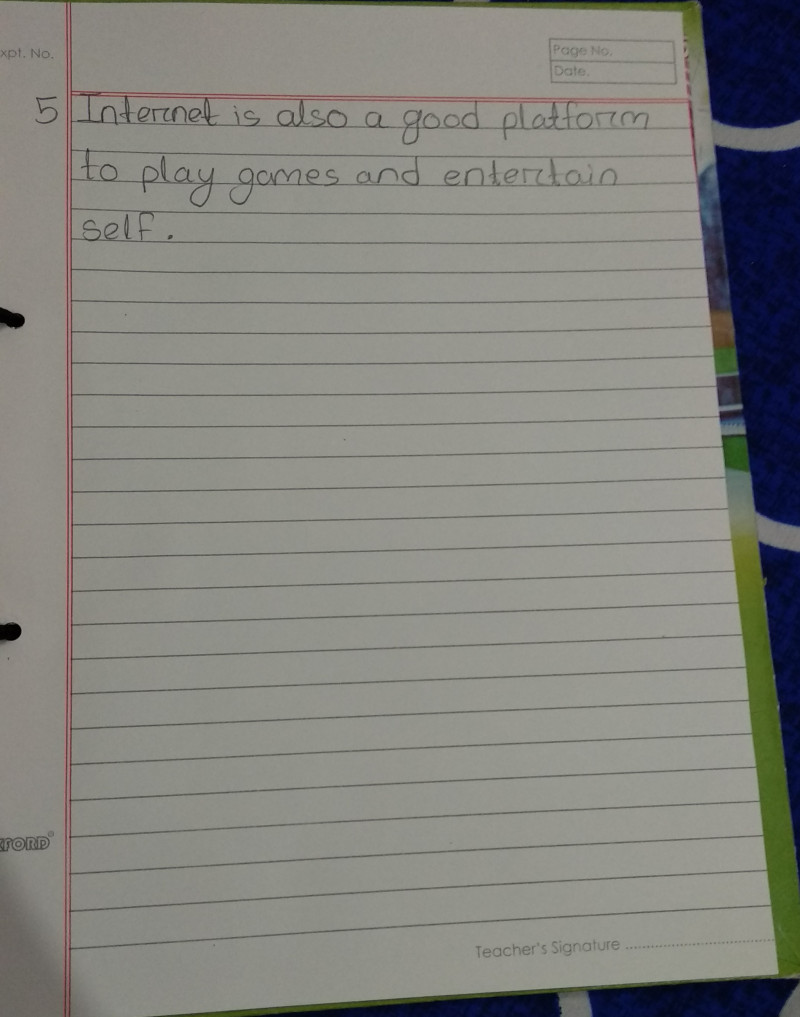 xpt. No.
Page No.
Date.
5 Internet is also a good platform
to play games and entertain
self.
XFORD®
Teacher's Signature ................................